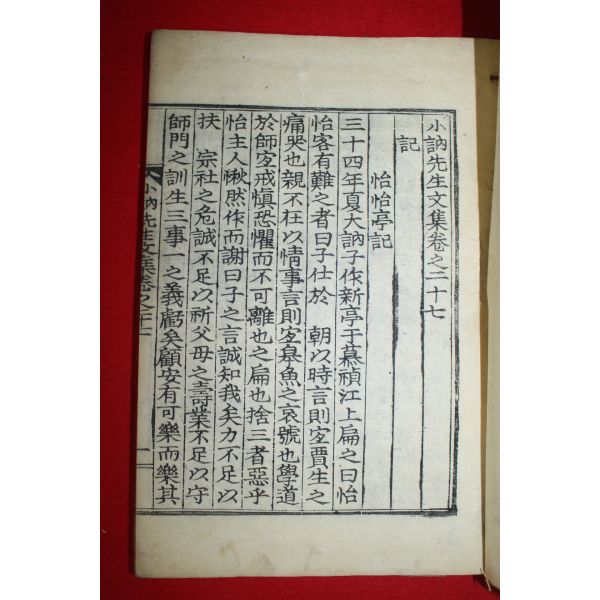 小訥先生文集卷之二十七
記
怡怡亭記
三十四年夏大訥子作新亭于慕禎江上扁之曰怡
怡客有難之者曰子仕於 朝以時言則宜賈生之
痛哭也親不在以情事言則宜皐魚之哀號也學道
於師宜戒愼恐懼而不可離也之扁也捨三者惡乎
怡主人愀然作而謝曰子之言誠知我矣力不足以
扶 宗社之危誠不足以祈父母之壽業不足以守
師門之訓生三事一之義虧矣顧安有可樂而樂其
小訥先生文集卷之二十七
一